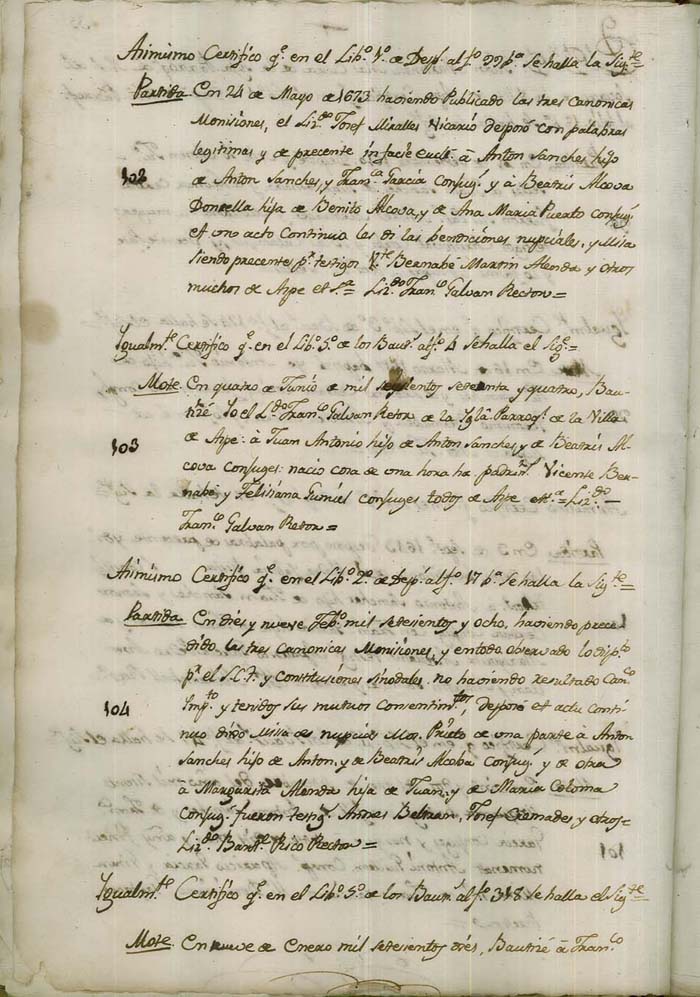 Asimismo Certifico q.e en el Lib.o 1.o de Desp.s al f.o 99 b.a se halla la Sig.te =
Partida En 24 de Mayo de 1673 haviendo Publicado las tres Canonicas
Monisiones, el Liz.do Josef Miralles Vicario desposó con palabras
legitimas y de precente in facie Eccle. à Anton Sanches hijo
102 de Anton Sanches, y Fran.ca Garcia Conjug.s y à Beatris Alcova
Donsella hija de Benito Alcova, y de Ana Maria Puerto Conjug.s
et uno acto Continuo les di las bendiciones nupciales, y Misa
siendo precentes p.r testigos V.te Bernabé Martin Alenda y otros
muchos de Aspe et S.a Liz.do Fran.co Galvan Rector =
Igualm.te Certifico q.e en el Lib.o 5.o de los Baut.s al f.o 4 se halla el Sig.e =
Mote. En quatro de Junio de mil seysientos setenta y quatro, Bau-
tizé Yo el L.do Fran.co Galvan Retor de la Igl.a Parroq.l de la Villa
103 de Aspe: à Juan Antonio hijo de Anton Sanches, y de Beatris Al-
cova Conjuges: nacio cosa de una hora ha padrin.s Vicente Ber-
nabe y Felisiana Gumiel conjuges todos de Aspe et.a = Liz.do
Fran.co Galvan Retor =
Asimismo Certifico q.e en el Lib.o 2.o de Desp.s al f.o 17 b.a se halla la Sig.te =
Partida. En dies y nueve Feb.o mil setesientos y ocho, haviendo prece-
dido las tres Canonicas Monisiones, y en todo observado lo disp.to
p.r el S.C.T. y Constitusiones sinodales no haviendo resultado Can.co
104 Imp.to y tenidos sus mutuos Consentim.tos, desposé et actu conti-
nuo dixo Misa de nupcias Mos. Prieto de una parte à Anton
Sanches hijo de Anton, y de Beatris Alcoba Conjug.s y de otra
à Margarita Alenda hija de Juan, y de Maria Coloma
Conjug.s fueron testig.s Andres Beltran, Josef Cremades y otros =
Liz.do Bart.me Rico Rector =
Igualm.te Certifico q.e en el Lib.o 5.o de los Baut.s al f.o 318 se halla el Sig.te =
Mote. En nueve de Enero mil setesientos dies, Bautizé à Fran.co